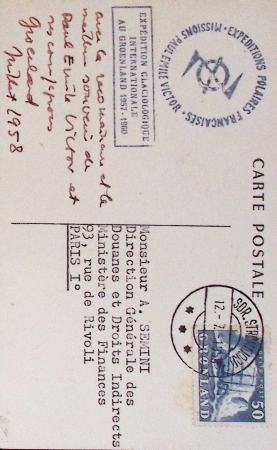 avec la reconnaissance et le
meilleur souvenir de
Paul Emile Victor et
ses compagnons
Groenland
Juillet 1958
EXPÉDITION GLACIOLOGIQUE
INTERNATIONALE
AU GROENLAND 1957-1960
EXPÉDITIONS POLAIRES FRANÇAISES
MISSIONS PAUL EMILE VICTOR
CARTE POSTALE
SDR. STRØM
12.-7.
50
GRØNLAND
Monsieur A. SEMINI
Direction Générale des
Douanes et Droits Indirects
Ministère des Finances
93, rue de Rivoli
PARIS I°